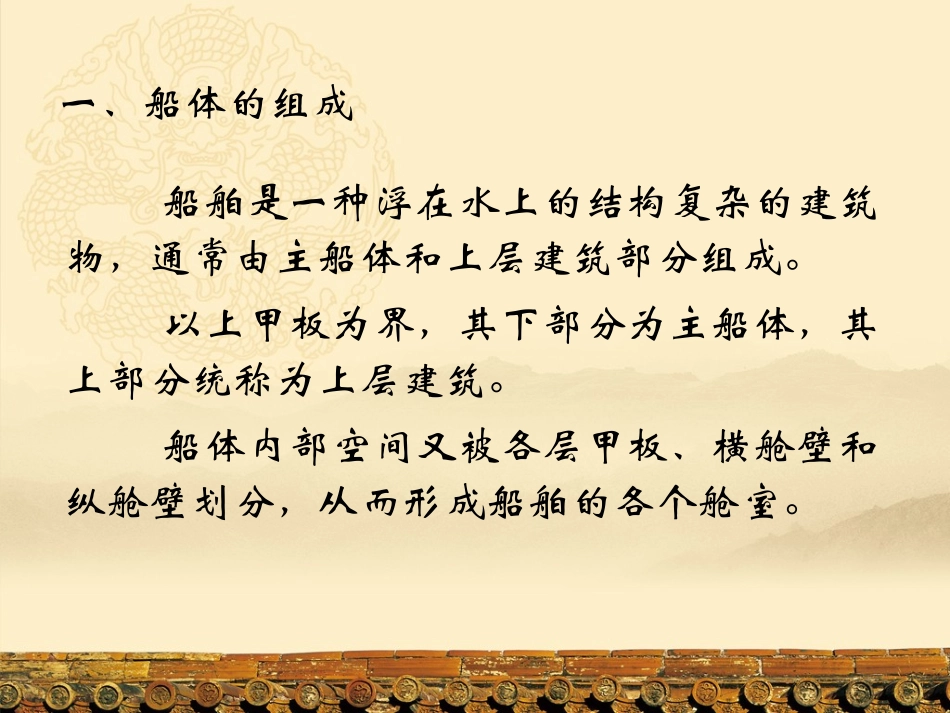 一、船体的组成
船舶是一种浮在水上的结构复杂的建筑
物，通常由主船体和上层建筑部分组成。
以上甲板为界，其下部分为主船体，其
上部分统称为上层建筑。
船体内部空间又被各层甲板、横舱壁和
纵舱壁划分，从而形成船舶的各个舱室。